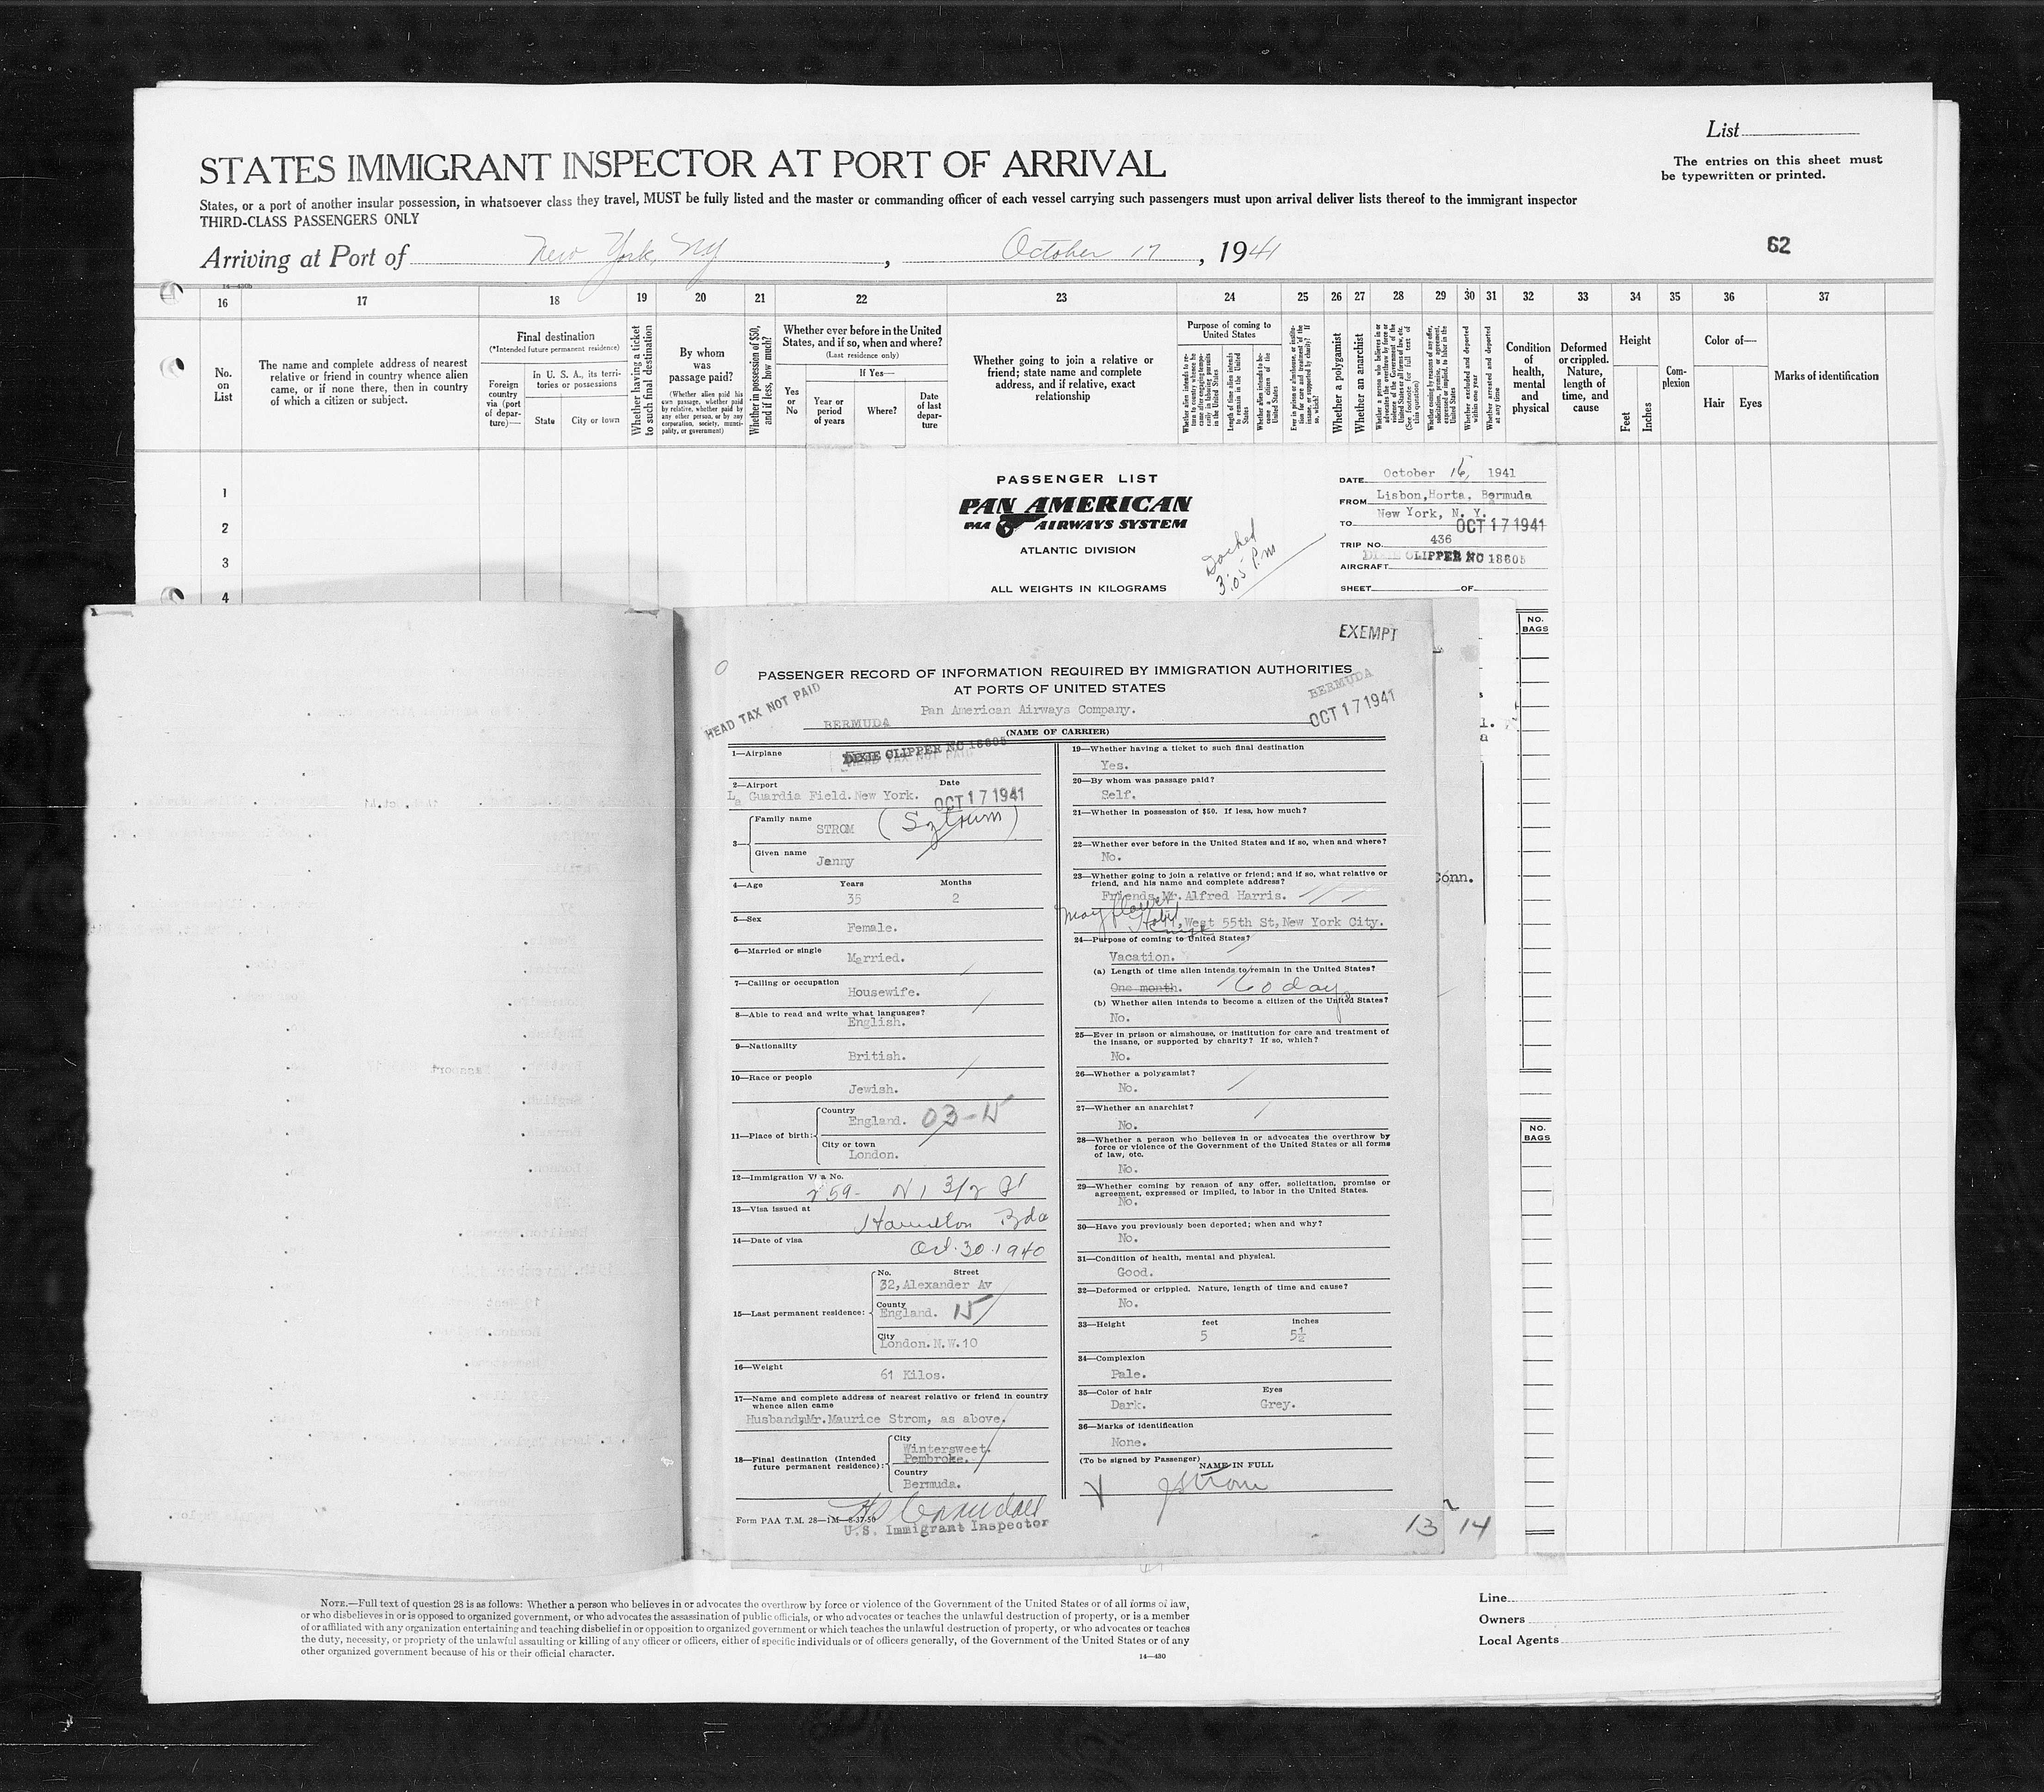 List
The entries on this sheet must
be typewritten or printed.
STATES IMMIGRANT INSPECTOR AT PORT OF ARRIVAL
States, or a port of another insular possession, in whatsoever class they travel, MUST be fully listed and the master or commanding officer of each vessel carrying such passengers must upon arrival deliver lists thereof to the immigrant inspector
THIRD-CLASS PASSENGERS ONLY
Arriving at Port of New York, NY, October 17, 1941
62
14-430b
16 17 18 19 20 21 22 23 24 25 26 27 28 29 30 31 32 33 34 35 36 37
No.
on
List
The name and complete address of nearest
relative or friend in country whence alien
came, or if none there, then in country
of which a citizen or subject.
Final destination
(*Intended future permanent residence)
Foreign
country
via (port
of depar-
ture)—
In U. S. A., its terri-
tories or possessions
State
City or town
Whether having a ticket
to such final destination
By whom
was
passage paid?
(Whether alien paid his
own passage, whether paid
by relative, whether paid by
any other person, or by any
corporation, society, munici-
pality, or government)
Whether in possession of $50,
and if less, how much?
Whether ever before in the United
States, and if so, when and where?
(Last residence only)
Yes
or
No
If Yes—
Year or
period
of years
Where?
Date
of last
depar-
ture
Whether going to join a relative or
friend; state name and complete
address, and if relative, exact
relationship
Purpose of coming to
United States
Length of time alien intends
to remain in the United
States
Whether alien intends to be-
come a citizen of the
United States
Whether a polygamist
Whether an anarchist
Whether excluded and deported
within one year
Whether arrested and deported
at any time
Condition
of
health,
mental
and
physical
Deformed
or crippled.
Nature,
length of
time, and
cause
Height
Feet
Inches
Com-
plexion
Color of—
Hair
Eyes
Marks of identification
1
2
3
4
PASSENGER LIST
PAN AMERICAN
PAA AIRWAYS SYSTEM
ATLANTIC DIVISION
ALL WEIGHTS IN KILOGRAMS
Docked
3:05 P.m
DATE October 16, 1941
FROM Lisbon,Horta, Bermuda
TO New York, N. Y.
OCT 17 1941
TRIP NO. 436
AIRCRAFT DIXIE CLIPPER NC 18605
SHEET OF
NO.
BAGS
NO.
BAGS
Conn.
EXEMPT
PASSENGER RECORD OF INFORMATION REQUIRED BY IMMIGRATION AUTHORITIES
AT PORTS OF UNITED STATES
HEAD TAX NOT PAID
BERMUDA
Pan American Airways Company.
(NAME OF CARRIER)
BERMUDA
OCT 17 1941
1—Airplane
DIXIE CLIPPER NC 18605
HEAD TAX NOT PAID
2—Airport Date
La Guardia Field.New York. OCT 17 1941
3— Family name
STROM (Sztrum)
Given name
Jenny
4—Age Years Months
35 2
5—Sex
Female.
6—Married or single
Married.
7—Calling or occupation
Housewife.
8—Able to read and write what languages?
English.
9—Nationality
British.
10—Race or people
Jewish.
11—Place of birth:
Country
England. 03-15
City or town
London.
12—Immigration Visa No.
259-
13—Visa issued at
Hamilton Bda
14—Date of visa
Oct. 30. 1940
15—Last permanent residence:
No. Street
32, Alexander Av
County
England. 15
City
London.N.W.10
16—Weight
61 Kilos.
17—Name and complete address of nearest relative or friend in country
whence alien came
Husband,Mr.Maurice Strom, as above.
18—Final destination (Intended
future permanent residence):
City
Wintersweet.
Pembroke.
Country
Bermuda.
Form PAA T.M. 28—1M—8-37-50
U.S. Immigrant Inspector
19—Whether having a ticket to such final destination
Yes.
20—By whom was passage paid?
Self.
21—Whether in possession of $50. If less, how much?
22—Whether ever before in the United States and if so, when and where?
No.
23—Whether going to join a relative or friend; and if so, what relative or
friend, and his name and complete address?
Friends,Mr.Alfred Harris.
Mayflower
Hotel
West 55th St,New York City.
24—Purpose of coming to United States?
Vacation.
(a) Length of time alien intends to remain in the United States?
One month. 60 days
(b) Whether alien intends to become a citizen of the United States?
No.
25—Ever in prison or almshouse, or institution for care and treatment of
the insane, or supported by charity? If so, which?
No.
26—Whether a polygamist?
No.
27—Whether an anarchist?
No.
28—Whether a person who believes in or advocates the overthrow by
force or violence of the Government of the United States or all forms
of law, etc.
No.
29—Whether coming by reason of any offer, solicitation, promise or
agreement, expressed or implied, to labor in the United States.
No.
30—Have you previously been deported; when and why?
No.
31—Condition of health, mental and physical.
Good.
32—Deformed or crippled. Nature, length of time and cause?
No.
33—Height feet inches
5 5½
34—Complexion
Pale.
35—Color of hair Eyes
Dark. Grey.
36—Marks of identification
None.
(To be signed by Passenger)
NAME IN FULL
JStrom
13 14
NOTE.—Full text of question 28 is as follows: Whether a person who believes in or advocates the overthrow by force or violence of the Government of the United States or of all forms of law,
or who disbelieves in or is opposed to organized government, or who advocates the assassination of public officials, or who advocates or teaches the unlawful destruction of property, or is a member
of or affiliated with any organization entertaining and teaching disbelief in or opposition to organized government or which teaches the unlawful destruction of property, or who advocates or teaches
the duty, necessity, or propriety of the unlawful assaulting or killing of any officer or officers, either of specific individuals or of officers generally, of the Government of the United States or of any
other organized government because of his or their official character.
14—430
Line
Owners
Local Agents